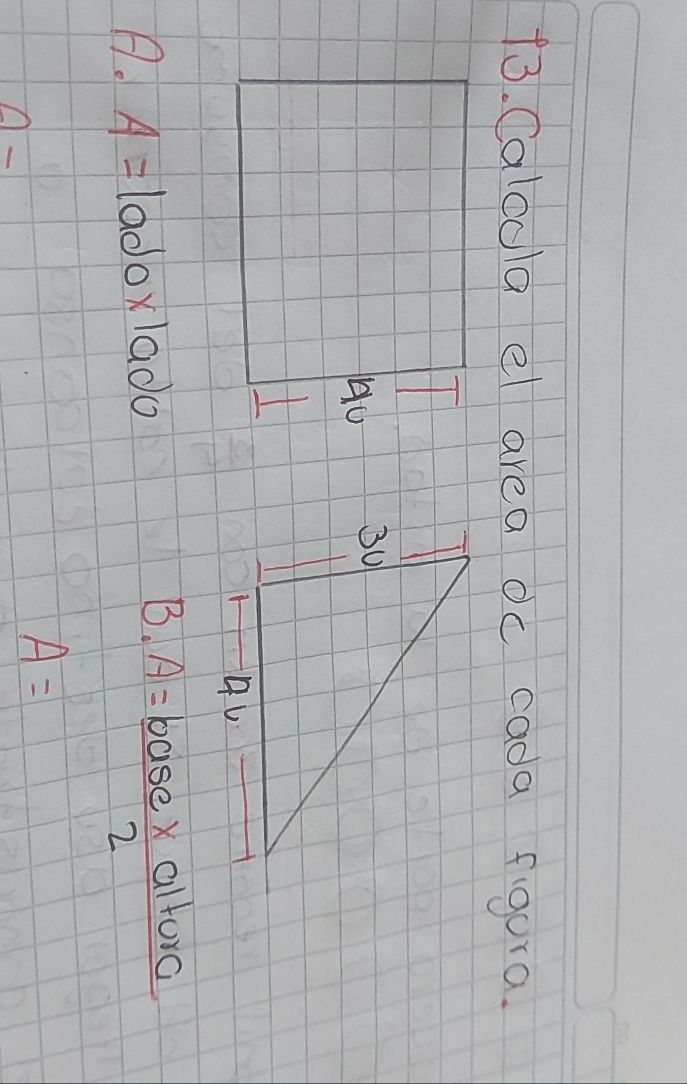 13. Calcula el area de cada figura.
4u
3u
4u
A. A = lado x lado
B. A = base x altura
2
A =
A =